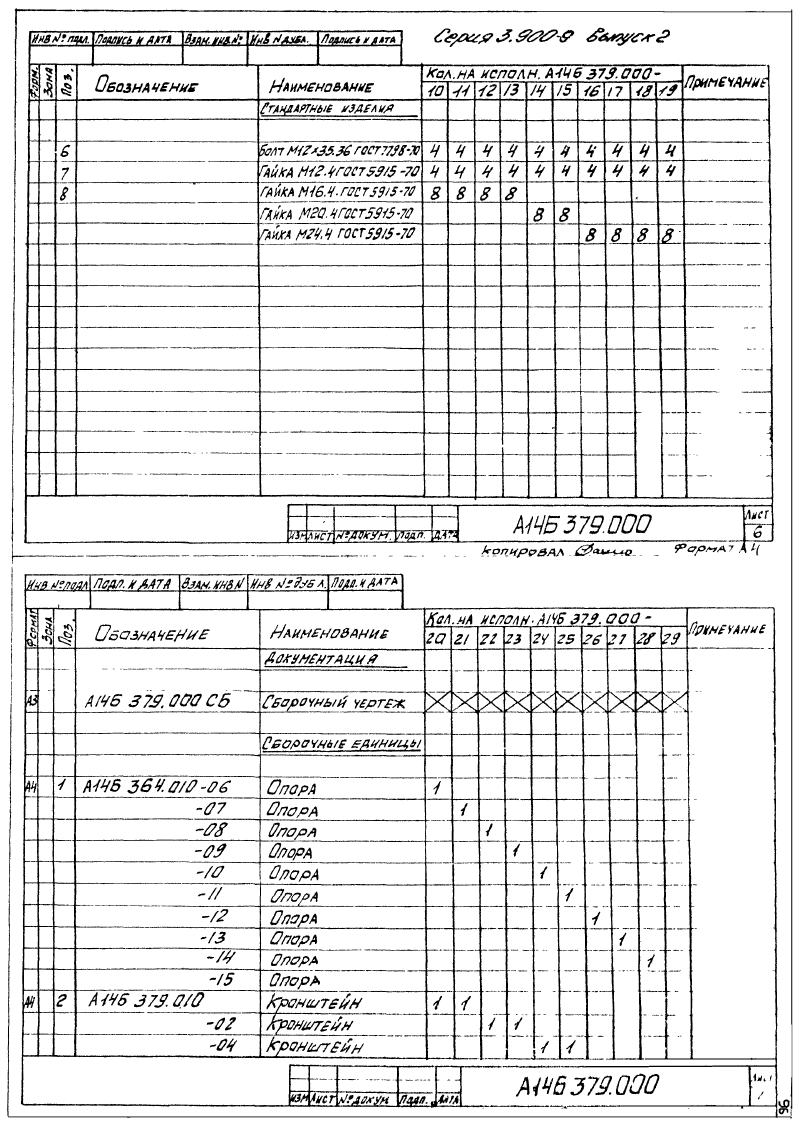 Серия 3.900-9 Выпуск 2
Инв № подл. Подпись и дата Взам. инв. № Инв № дубл. Подпись и дата
Форм. Зона Поз. Обозначение Наименование Кол. на исполн. А14Б 379.000- Примечание
10 11 12 13 14 15 16 17 18 19
Стандартные изделия
6 Болт М12×35.36 ГОСТ 7798-70 4 4 4 4 4 4 4 4 4 4
7 Гайка М12.4 ГОСТ 5915-70 4 4 4 4 4 4 4 4 4 4
8 Гайка М16.4. ГОСТ 5915-70 8 8 8 8
Гайка М20.4 ГОСТ 5915-70 8 8
Гайка М24.4 ГОСТ 5915-70 8 8 8 8
Изм Лист № докум. Подп. Дата А14Б 379.000 Лист 6
Копировал Формат А4
Инв № подл Подп. и дата Взам. инв N Инв № дубл. Подп. и дата
Формат Зона Поз. Обозначение Наименование Кол. на исполн. А14Б 379.000- Примечание
20 21 22 23 24 25 26 27 28 29
Документация
А3 А14Б 379.000 СБ Сборочный чертеж
Сборочные единицы
А4 1 А14Б 364.010-06 Опора 1
-07 Опора 1
-08 Опора 1
-09 Опора 1
-10 Опора 1
-11 Опора 1
-12 Опора 1
-13 Опора 1
-14 Опора 1
-15 Опора
А4 2 А14Б 379.010 Кронштейн 1 1
-02 Кронштейн 1 1
-04 Кронштейн 1 1
Изм Лист № докум Подп. Дата А14Б 379.000 Лист
96